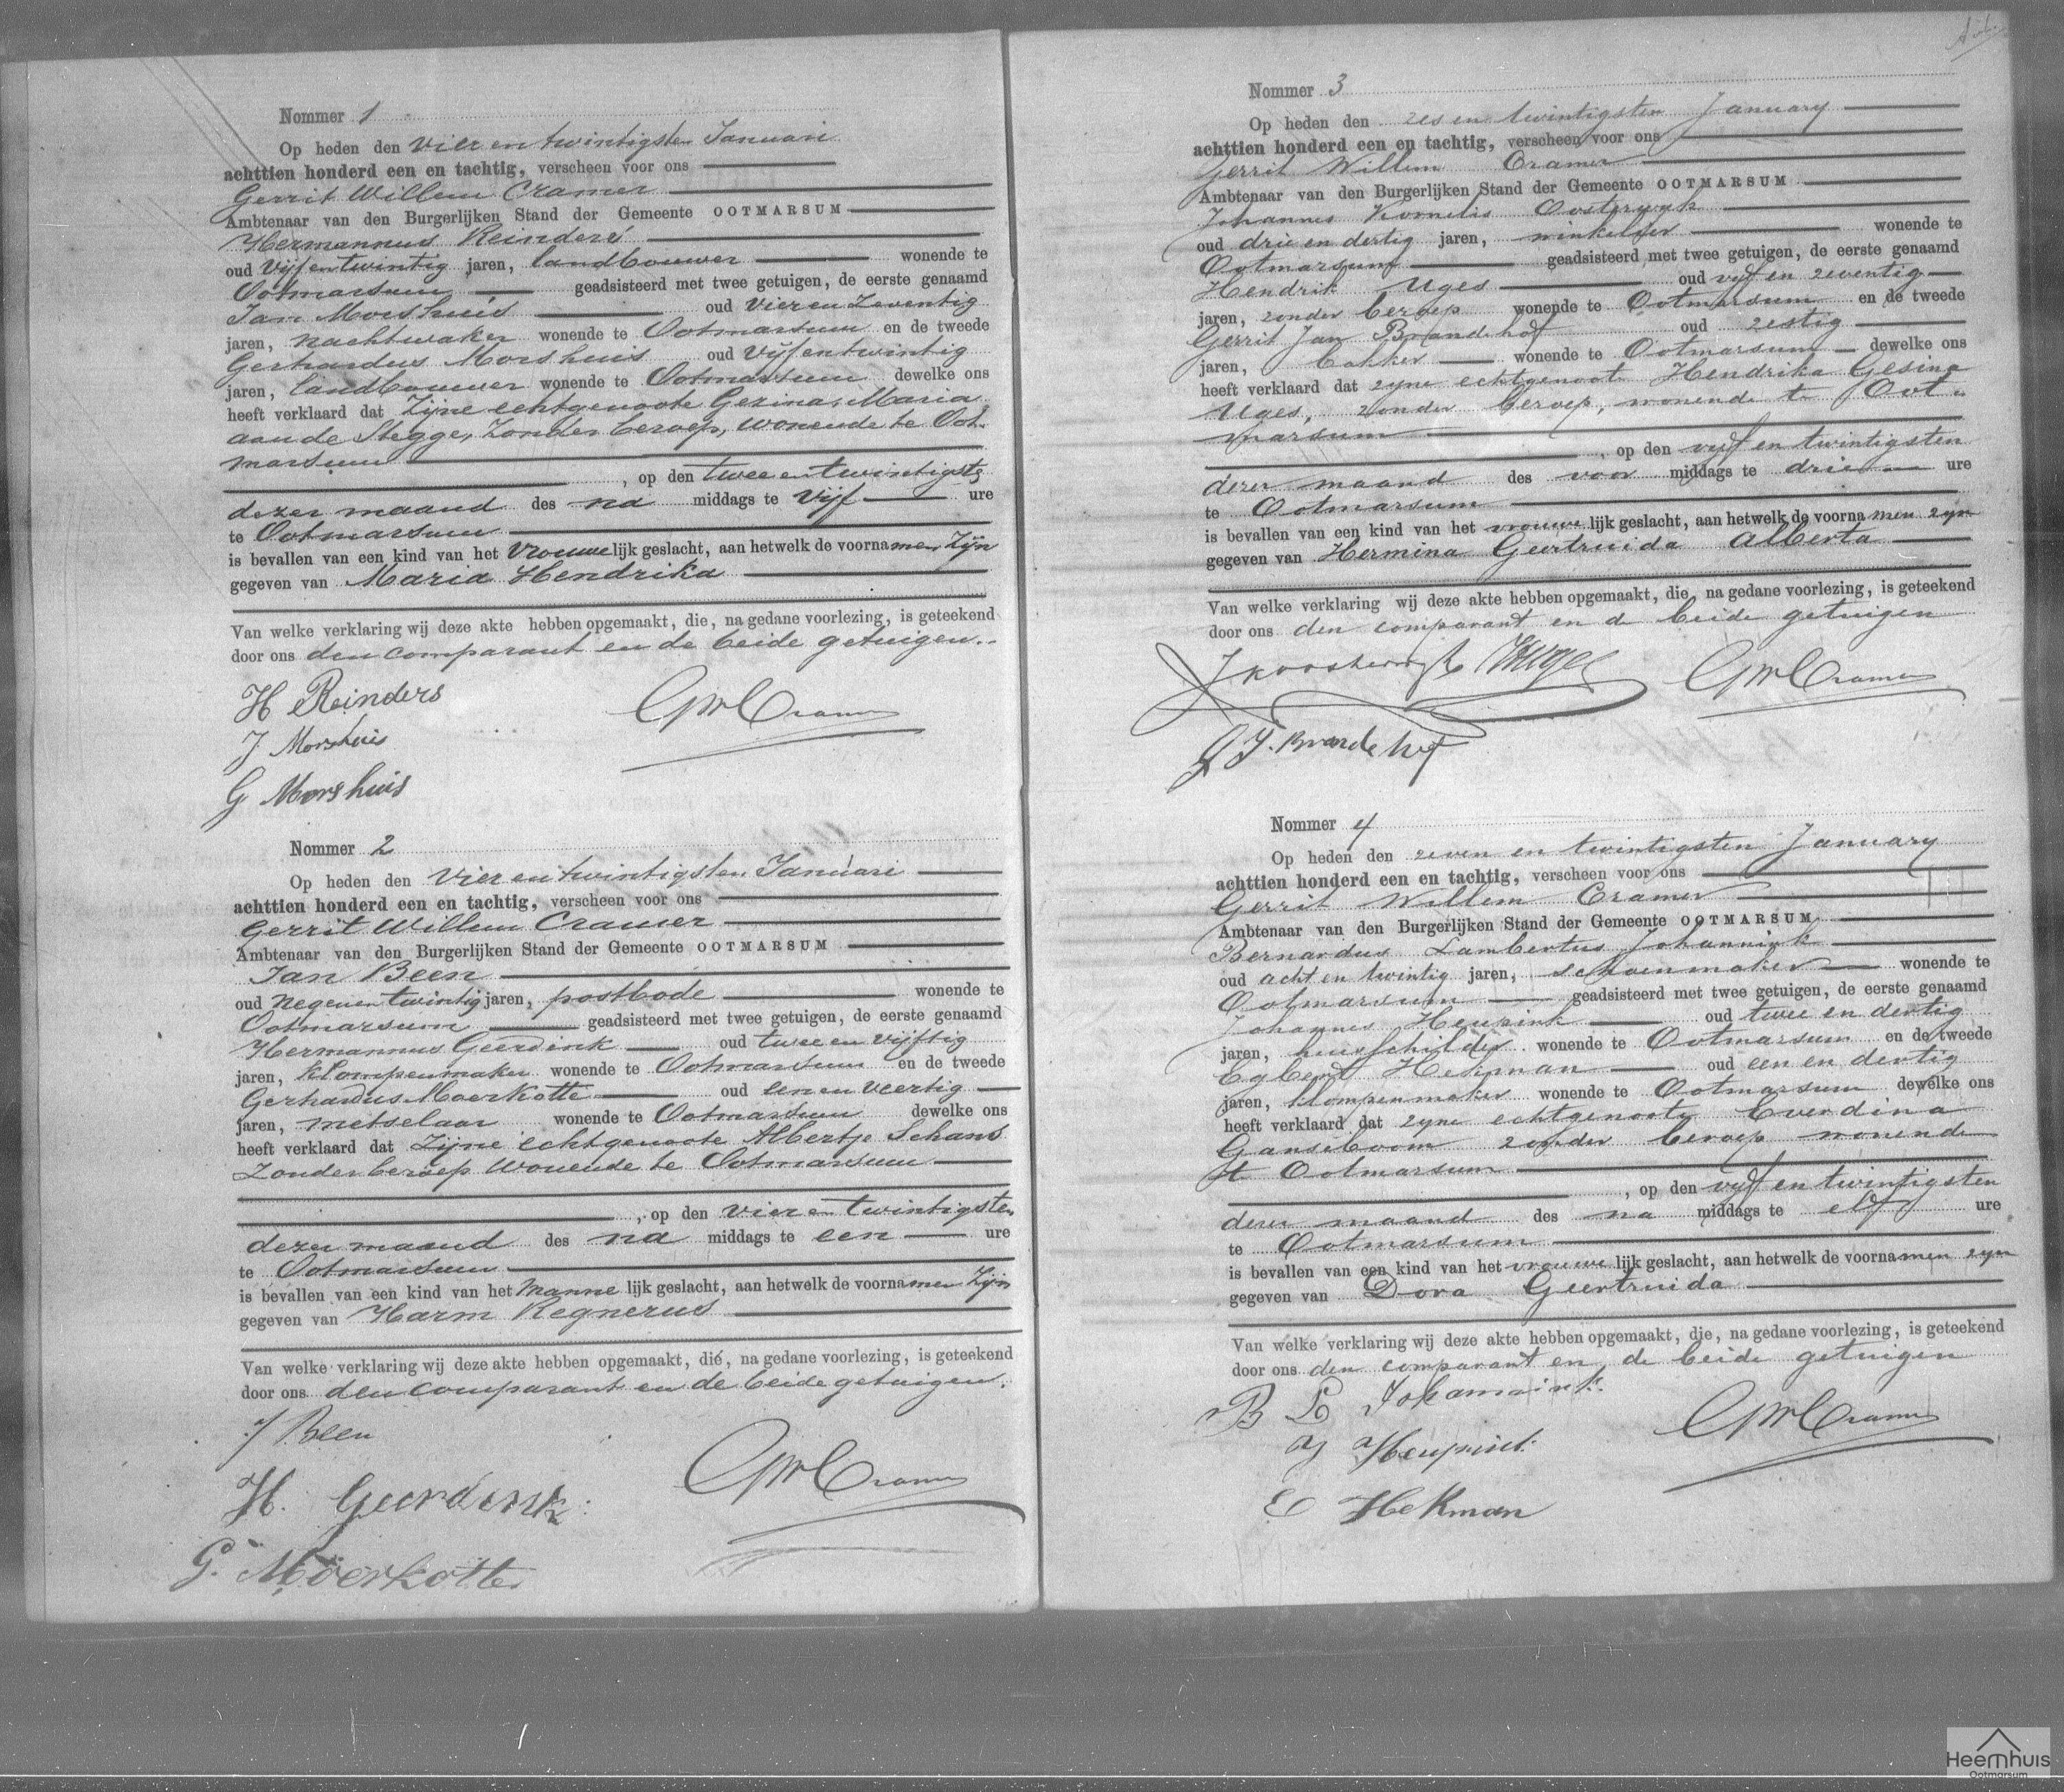 Nommer 1
Op heden den vier en twintigsten Januari
achttien honderd een en tachtig, verscheen voor ons
Gerrit Willem Cramer
Ambtenaar van den Burgerlijken Stand der Gemeente OOTMARSUM
Hermannus Reinders
oud vijf en twintig jaren, landbouwer wonende te
Ootmarsum geadsisteerd met twee getuigen, de eerste genaamd
Jan Morshuis oud vier en zeventig
jaren, nachtwaker wonende te Ootmarsum en de tweede
Gerhardus Morshuis oud vijf en twintig
jaren, landbouwer wonende te Ootmarsum dewelke ons
heeft verklaard dat zijne echtgenoote Gezina, Maria
aan de Stegge, zonder beroep, wonende te Oot-
marsum
, op den twee en twintigste
dezer maand des na middags te vijf ure
te Ootmarsum
is bevallen van een kind van het vrouwelijk geslacht, aan hetwelk de voornamen zijn
gegeven van Maria Hendrika
Van welke verklaring wij deze akte hebben opgemaakt, die, na gedane voorlezing, is geteekend
door ons den comparant en de beide getuigen.
H Reinders GWCramer
J Morshuis
G Morshuis
Nommer 2
Op heden den vier en twintigsten Januari
achttien honderd een en tachtig, verscheen voor ons
Gerrit Willem Cramer
Ambtenaar van den Burgerlijken Stand der Gemeente OOTMARSUM
Jan Been
oud negen en twintig jaren, postbode wonende te
Ootmarsum geadsisteerd met twee getuigen, de eerste genaamd
Hermannus Geerdink oud twee en vijftig
jaren, klompenmaker wonende te Ootmarsum en de tweede
Gerhardus Moerkotte oud een en veertig
jaren, metselaar wonende te Ootmarsum dewelke ons
heeft verklaard dat zijne echtgenoote Albertje Schans
zonder beroep wonende te Ootmarsum
, op den vier en twintigsten
dezer maand des na middags te een ure
te Ootmarsum
is bevallen van een kind van het mannelijk geslacht, aan hetwelk de voornamen zijn
gegeven van Harm Regnerus
Van welke verklaring wij deze akte hebben opgemaakt, die, na gedane voorlezing, is geteekend
door ons den comparant en de beide getuigen.
J Been
H. Geerdink GWCramer
G. Moerkotte
Nommer 3
Op heden den zes en twintigsten January
achttien honderd een en tachtig, verscheen voor ons
Gerrit Willem Cramer
Ambtenaar van den Burgerlijken Stand der Gemeente OOTMARSUM
Johannes Kornelis Oosterwyk
oud drie en dertig jaren, winkelier wonende te
Ootmarsum geadsisteerd met twee getuigen, de eerste genaamd
Hendrik Uges oud vyf en zeventig
jaren, zonder beroep wonende te Ootmarsum en de tweede
Gerrit Jan Brandehof oud zestig
jaren, bakker wonende te Ootmarsum dewelke ons
heeft verklaard dat zyne echtgenoote Hendrika Gesina
Uges, zonder beroep, wonende te Oot-
marsum
, op den vyf en twintigsten
dezer maand des voor middags te drie ure
te Ootmarsum
is bevallen van een kind van het vrouwelijk geslacht, aan hetwelk de voornamen zyn
gegeven van Hermina Geertruida Alberta
Van welke verklaring wij deze akte hebben opgemaakt, die, na gedane voorlezing, is geteekend
door ons den comparant en de beide getuigen
JKOosterwyk HUges GWCramer
G J. Brandehof
Nommer 4
Op heden den zeven en twintigsten January
achttien honderd een en tachtig, verscheen voor ons
Gerrit Willem Cramer
Ambtenaar van den Burgerlijken Stand der Gemeente OOTMARSUM
Bernardus Lambertus Johannink
oud acht en twintig jaren, schoenmaker wonende te
Ootmarsum geadsisteerd met twee getuigen, de eerste genaamd
Johannes Heupink oud twee en dertig
jaren, huisschilder wonende te Ootmarsum en de tweede
Egbert Hekman oud een en dertig
jaren, klompenmaker wonende te Ootmarsum dewelke ons
heeft verklaard dat zyne echtgenoote Everdina
Ganseboom zonder beroep wonende
te Ootmarsum
, op den vyf en twintigsten
dezer maand des na middags te elf ure
te Ootmarsum
is bevallen van een kind van het vrouwelijk geslacht, aan hetwelk de voornamen zyn
gegeven van Dora Geertruida
Van welke verklaring wij deze akte hebben opgemaakt, die, na gedane voorlezing, is geteekend
door ons den comparant en de beide getuigen
B L Johannink
J Heupink GWCramer
E Hekman
Heemhuis
Ootmarsum